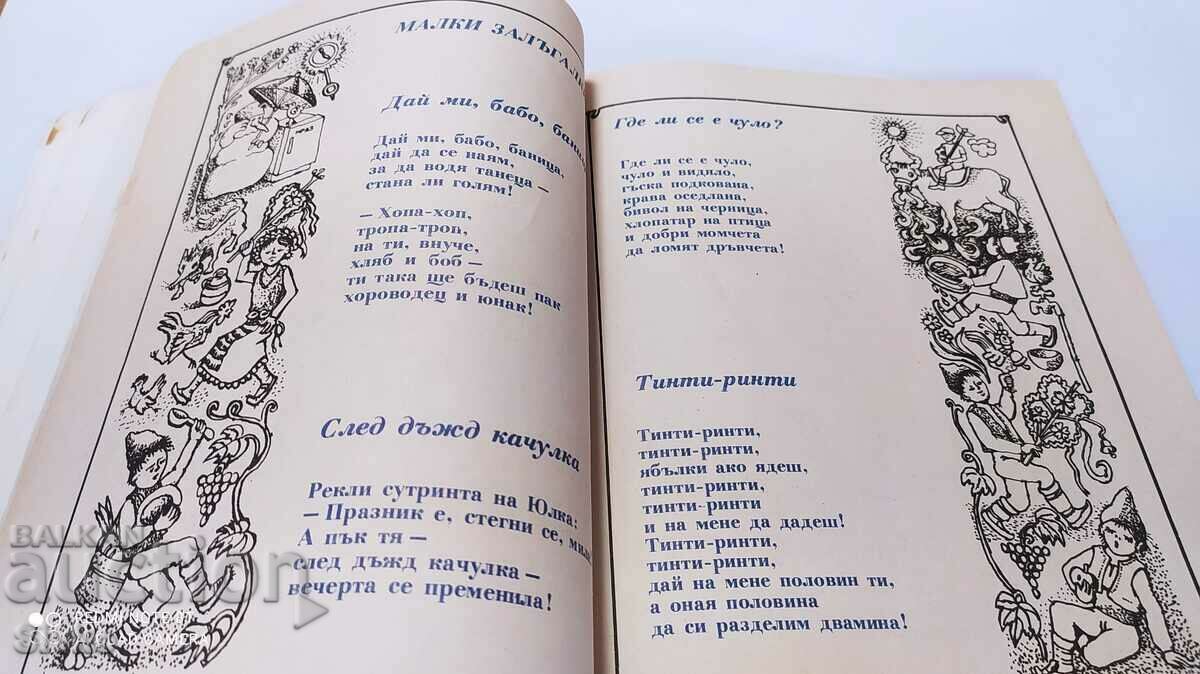 МАЛКИ
Дай ми, бабо,
Дай ми, бабо, баница,
дай да се наям,
за да водя танеца –
стана ли голям!
– Хопа-хоп,
тропа-троп,
на ти, внуче,
хляб и боб –
ти така ще бъдеш пак
хороводец и юнак!
След дъжд качулка
Рекли сутринта на Юлка:
– Празник е, стегни се,
А пък тя –
след дъжд качулка –
вечерта се пременила!
Где ли се е чуло?
Где ли се е чуло,
чуло и видяло,
гъска подкована,
крава оседлана,
бивол на черница,
хлопатар на птица
и добри момчета
да ломят дръвчета!
Тинти-ринти
Тинти-ринти,
тинти-ринти,
ябълки ако ядеш,
тинти-ринти,
тинти-ринти
и на мене да дадеш!
Тинти-ринти,
тинти-ринти,
дай на мене половин ти,
а оная половина
да си разделим двамина!
BALKAN
auction